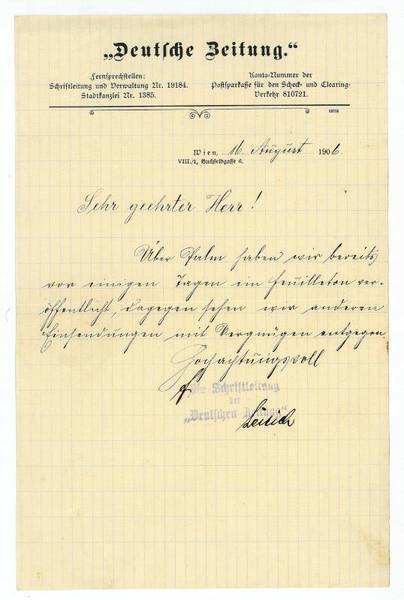 „Deutsche Zeitung.“
Fernsprechstellen:
Schriftleitung und Verwaltung Nr. 19184.
Stadtkanzlei Nr. 1385.
Konto-Nummer der
Postsparkasse für den Scheck- und Clearing-
Verkehr 810721.
Wien, 16. August 1906.
VIII./1, Buchfeldgasse 6.
Sehr geehrter Herr!
Über Palm haben wir bereits
vor einigen Tagen im Feuilleton ver-
öffentlicht, dagegen sehen wir anderen
Einsendungen mit Vergnügen entgegen
Hochachtungsvoll
Die Schriftleitung
der
„Deutschen Zeitung“